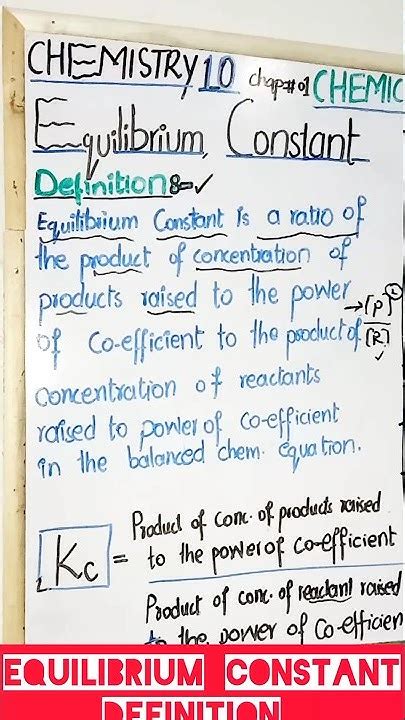 CHEMISTRY 10 chap#01 CHEMIC
Equilibrium Constant
Definition:-✓
Equilibrium Constant is a ratio of
the product of concentration of
products raised to the power
of Co-efficient to the product of
→[P]
[R]
✓
concentration of reactants
raised to power of co-efficient
in the balanced chem. equation.
Kc = Product of conc. of products raised
to the power of co-efficient
Product of conc. of reactant raised
to the power of co-efficien
EQUILIBRIUM CONSTANT
DEFINITION